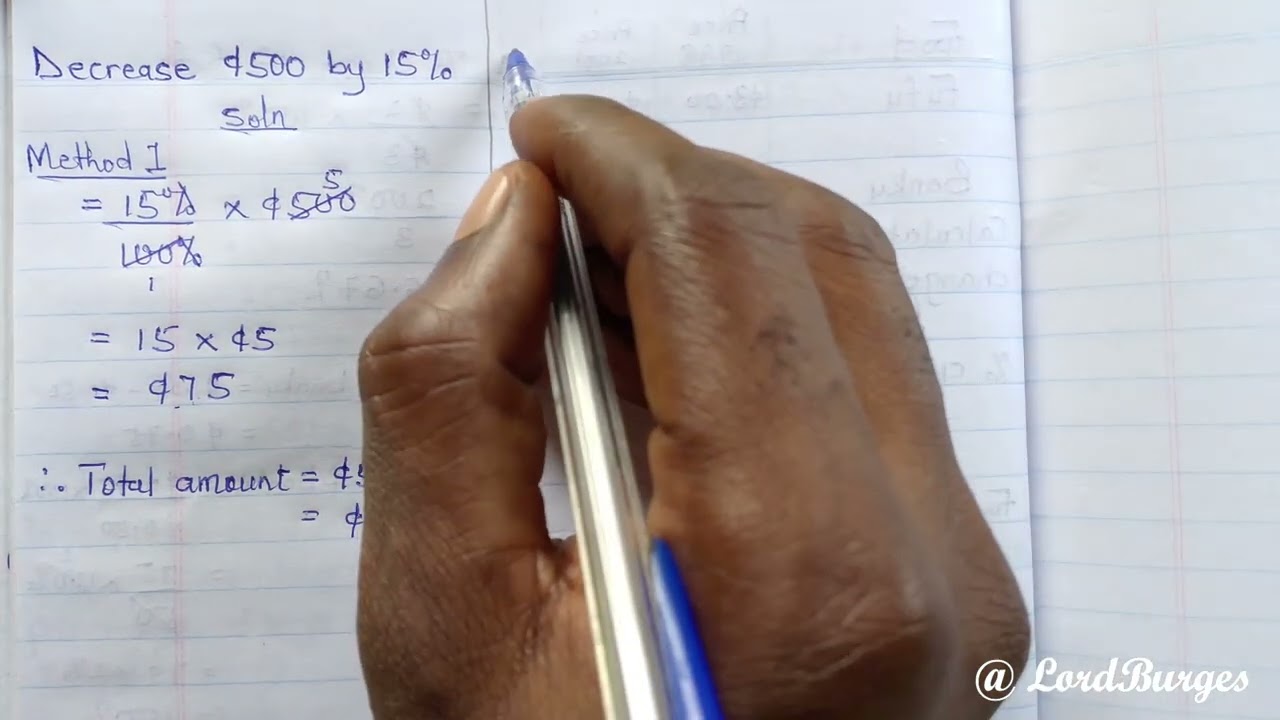 Decrease ₵500 by 15%
Soln
Method 1
= 15% x ₵500 5
100%
1
= 15 x ₵5
= ₵75
∴ Total amount = ₵
= ₵
@ LordBurges